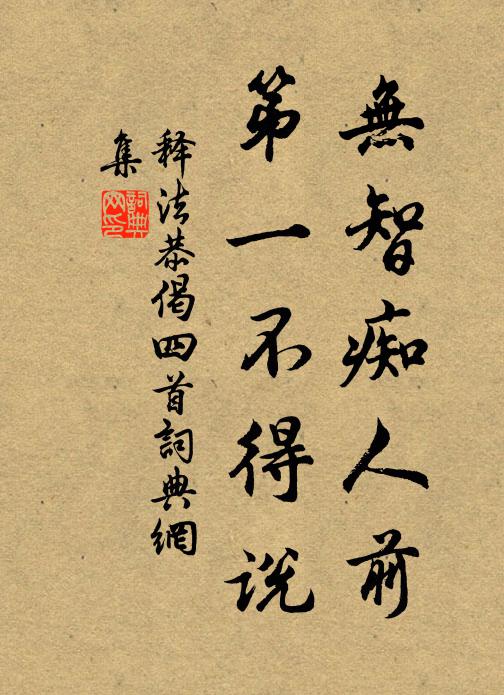 無智痴人前
第一不得説
释法恭偈四首詞典網
集
詞典
网印